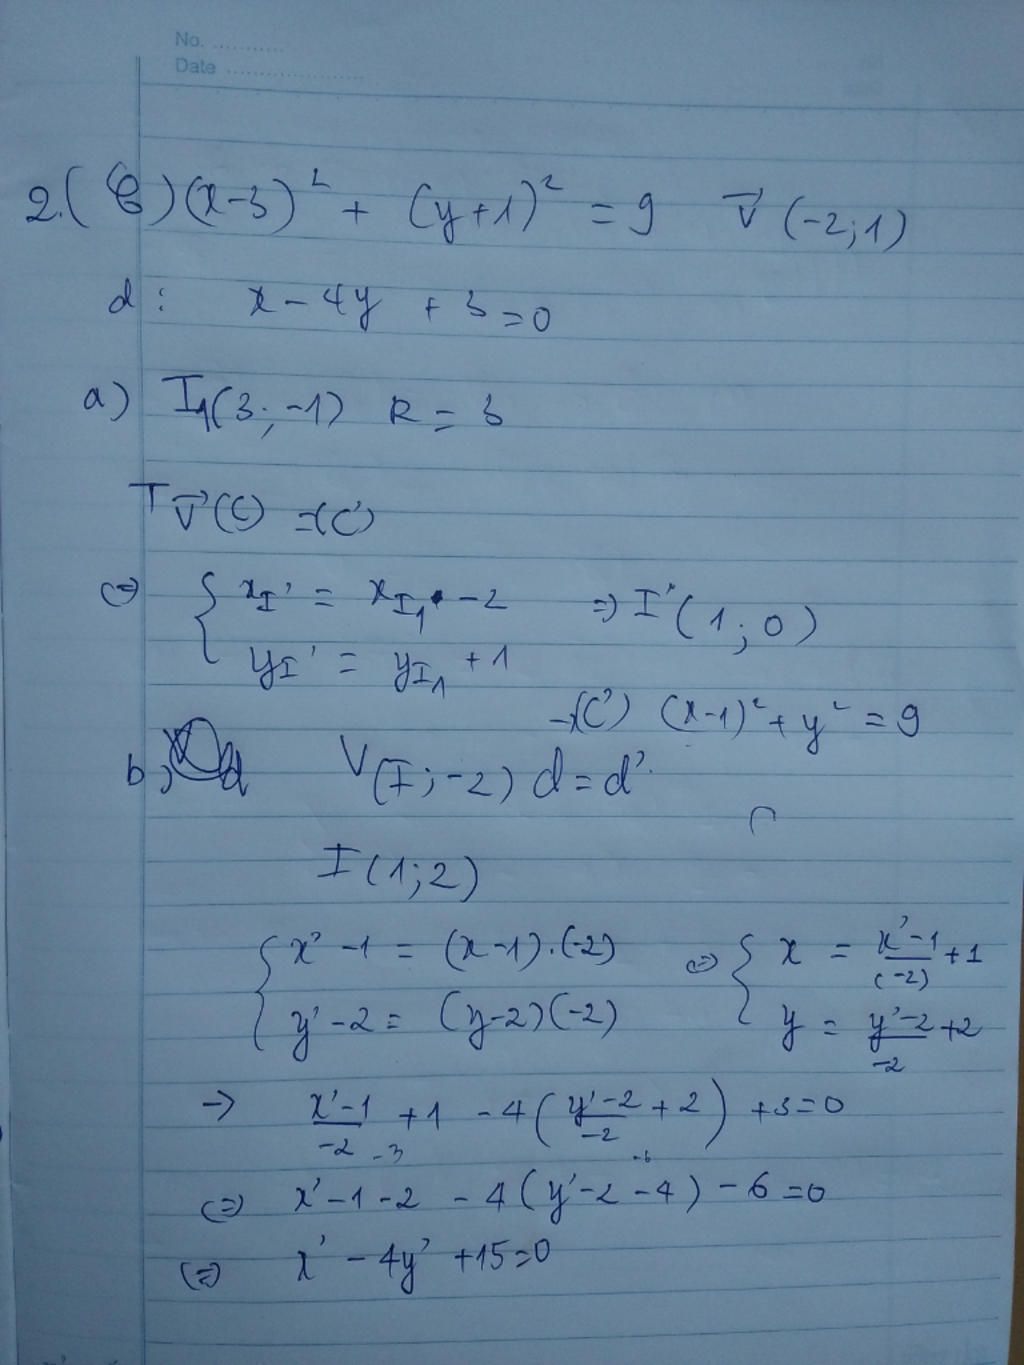 No. ............
Date .....................
2.(C) (x-3)² + (y+1)² = 9 v⃗ (-2;1)
d: x - 4y + 3 = 0
a) I₁(3;-1) R = 3
T v⃗ (C) = (C')
(=) { xI' = xI₁ - 2 => I'(1;0)
yI' = yI₁ + 1
→ (C') (x-1)² + y² = 9
b, d V(I;-2) d = d'.
I(1;2)
{ x' - 1 = (x-1).(-2) (=) { x = x'-1/(-2) + 1
y' - 2 = (y-2)(-2) y = y'-2/-2 + 2
→ x'-1/-2 + 1 - 4(y'-2/-2 + 2) + 3 = 0
-3 -6
(=) x' - 1 - 2 - 4(y' - 2 - 4) - 6 = 0
(=) x' - 4y' + 15 = 0